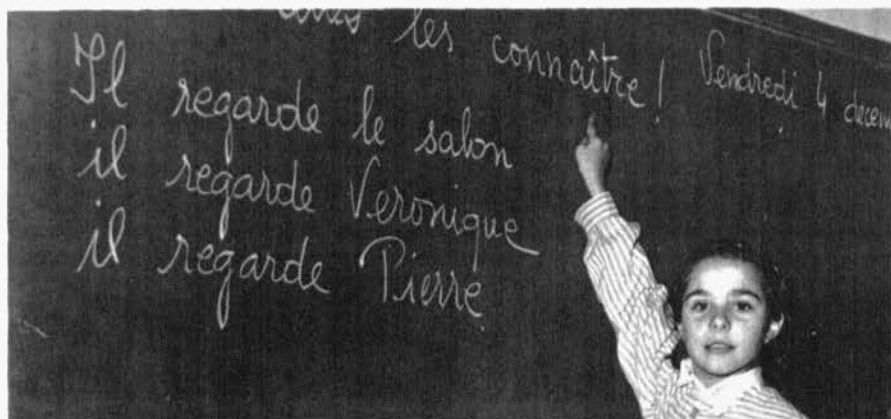 les connaître !
Vendredi 4 décem
Il regarde le salon
il regarde Veronique
il regarde Pierre